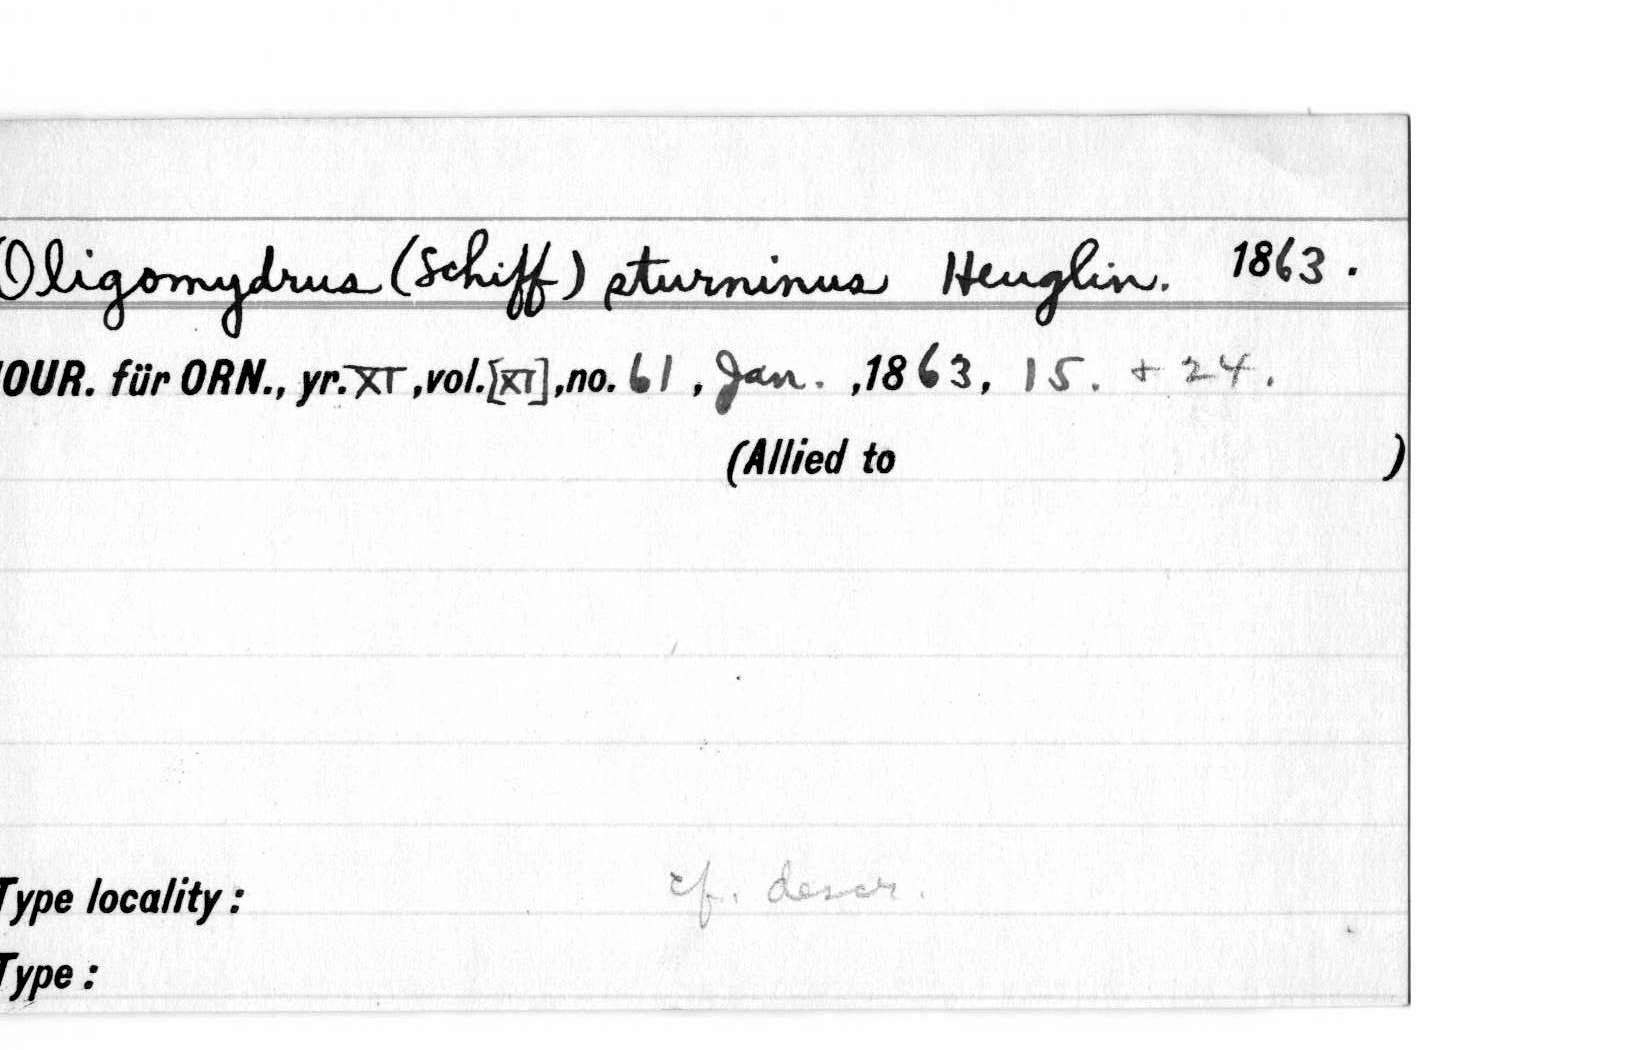 Oligomydrus (Schiff) sturninus Heuglin. 1863.
JOUR. für ORN., yr. XI, vol. [XI], no. 61, Jan. ,1863, 15. + 24.
(Allied to )
Type locality: cf. descr.
Type: